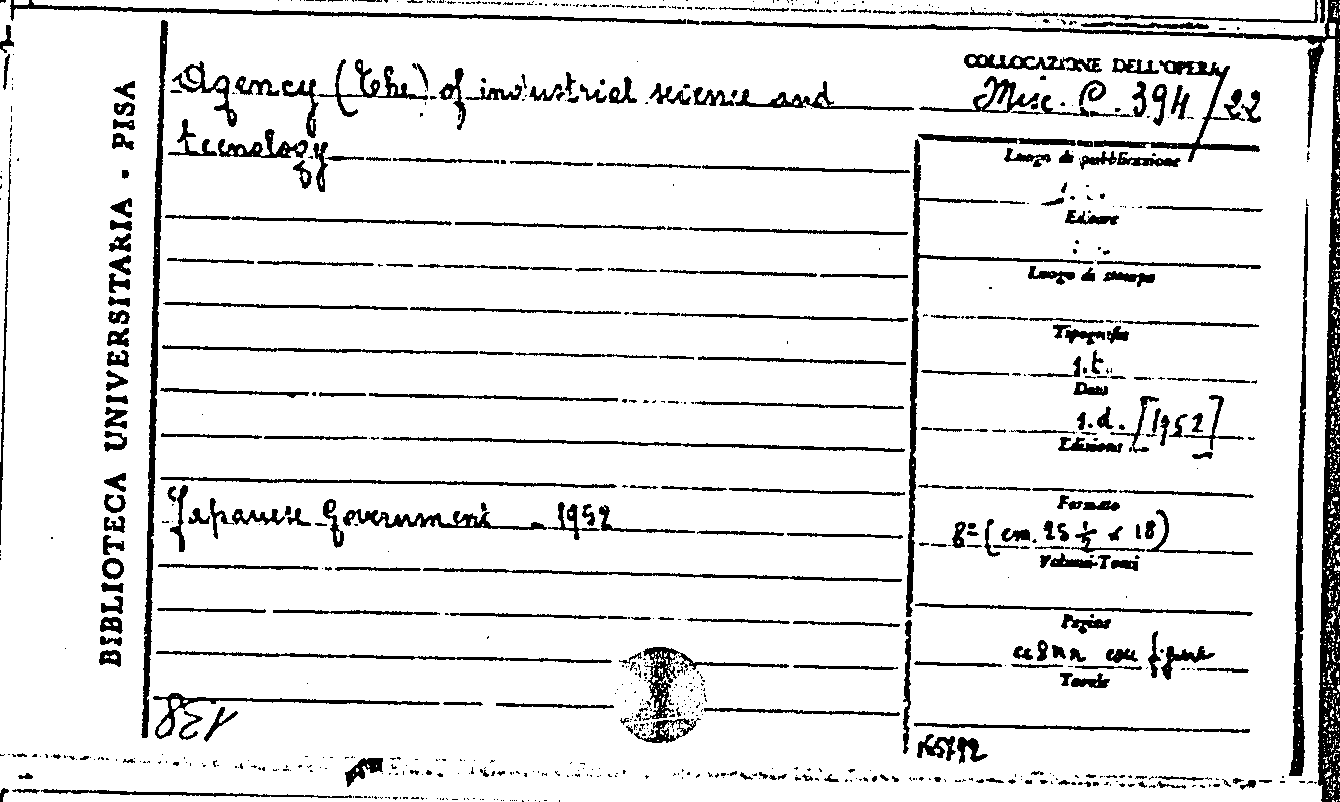 BIBLIOTECA UNIVERSITARIA - PISA
COLLOCAZIONE DELL'OPERA
Agency (The) of industrial science and
Misc. C. 394/22
tecnology
Luogo di pubblicazione
Editore
Luogo di stampa
Tipografia
s.t.
Data
s.d. [1952]
Edizione
Formato
Japanese Government - 1952
8º (cm. 25 ½ x 18)
Volumi-Tomi
Pagine
cc 8 nn con figure
Tavole